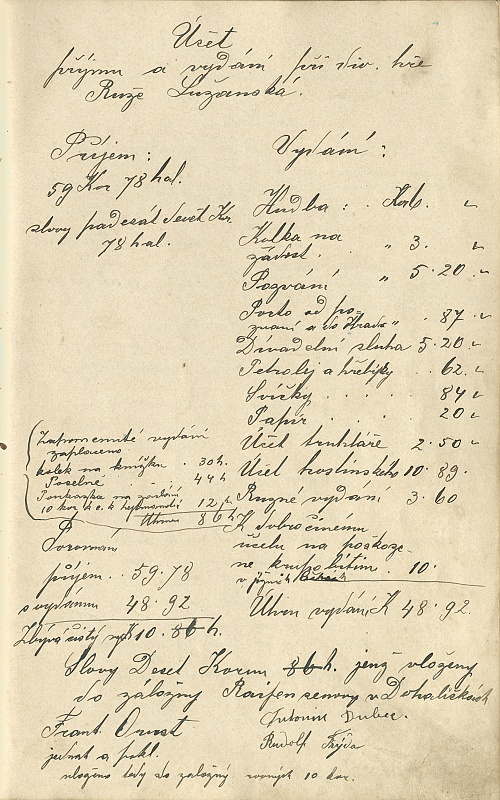 Účet
příjmu a vydání při div. hře
Růže Lužanská.
Příjem:
59 Kor 78 hal.
slovy padesát devět Kr
78 hal.
Vydání:
Hudba: Kor 6.
Kolka na
žádost. „ 3.
Pozvání „ 5.20
Porto od po-
zvaní a do Hradce „ . 87.
Divadelní sluha 5.20.
Petrolej a hřebíky . 62.
Svíčky . . . . 84
Papír . . . . 20
Účet truhláře 2.50
Účet hostinského 10.89.
Různé vydání 3.60
K dobročinému
účelu na poškoze-
né krupobitím . 10.
v jižních Čechách
Úhrn vydání K 48.92.
Zapomenuté vydání
zaplaceno
kolek na knížku . 30 h.
Poselné . 44 h
Poukázka na zaslání
10 kor k. k. hejtmanství 12 h
Úhrnem 86 h
Porovnání
příjem . . 59.78
s vydáním 48.92
Zbývá čistý K 10.86 h.
Slovy Deset Korun 86 h. jenž vloženy
do záložny Raifensenovy v Dohaličkách
Frant.
jednat. a pokl.
Antonín Dubec.
Rudolf Frýda
vloženo tedy do záložny rovných 10 kor.